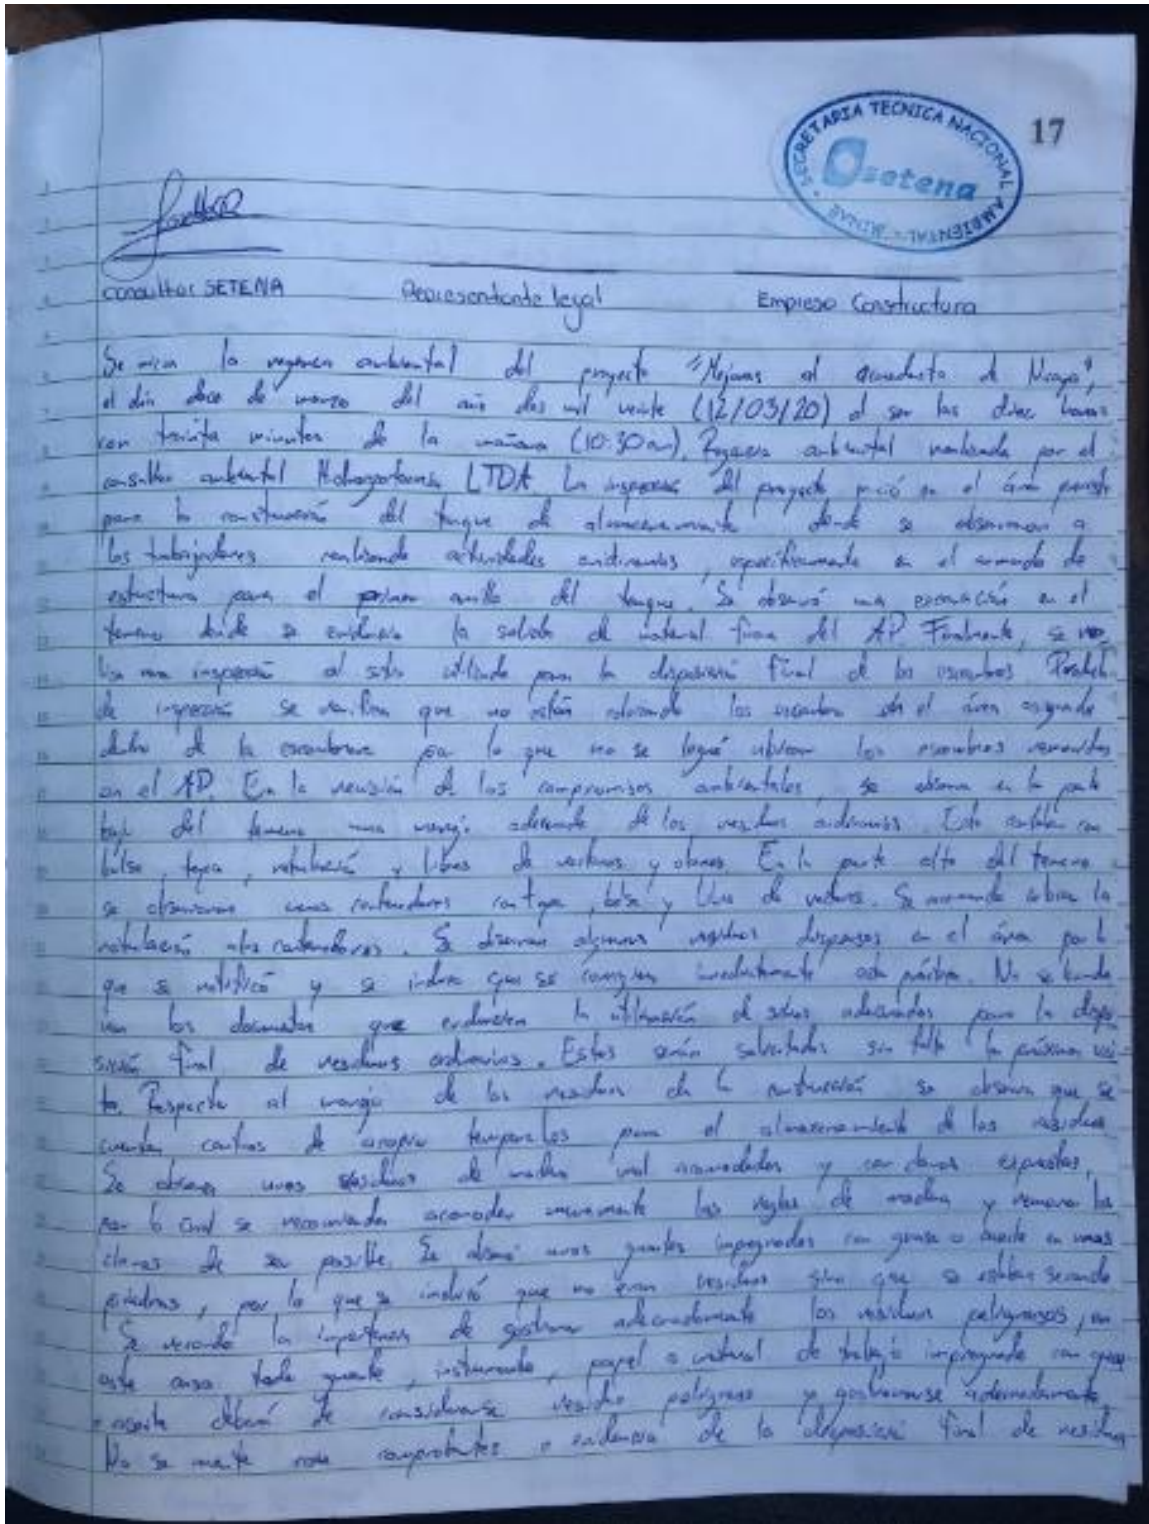 SECRETARIA TECNICA NACIONAL AMBIENTAL - MINAE
setena
17
consultor SETENA Representante legal Empresa Constructora
Se inicia la regencia ambiental del proyecto "Mejoras al acueducto de Nicoya",
el día doce de marzo del año dos mil veinte (12/03/20) al ser las diez horas
con treinta minutos de la mañana (10:30am). Regencia ambiental realizada por el
consultor ambiental LTDA. La inspección del proyecto inició en el área prevista
para la construcción del tanque de almacenamiento donde se observaron a
los trabajadores realizando actividades ordinarias, específicamente en el armado de
estructura para el primer anillo del tanque. Se observó una excavación en el
terreno donde se evidencia la salida de material fuera del AP. Finalmente, se rea-
liza una inspección al sitio utilizado para la disposición final de los escombros. Producto
de inspección se verifica que no están colocando los escombros en el área asignada
dentro de la escombrera por lo que no se logró ubicar los escombros removidos
en el AP. En la revisión de los compromisos ambientales, se observa en la parte
baja del terreno un manejo adecuado de los residuos ordinarios. Esto contaban con
bolsa, tapa, rotulación y libres de vectores y olores. En la parte alta del terreno
se observaron unos contenedores con tapa, bolsa y libre de vectores. Se recomienda la
rotulación a los contenedores. Se observan algunos residuos dispersos en el área por lo
que se notificó y se indica que se corrijan inmediatamente esta práctica. No se
los documentos que evidencien la utilización de sitios adecuados para la dispo-
sición final de residuos ordinarios. Estos serán solicitados sin falta la próxima visi-
ta. Respecto al manejo de los residuos de la construcción se observa que se
cuentan centros de acopio temporales para el almacenamiento de los residuos
Se observa unos residuos de madera mal acomodados y con clavos expuestos,
por lo cual se recomienda acomodar nuevamente las reglas de madera y remover los
clavos de ser posible. Se observó unos guantes impregnados con grasa o aceite en unas
piedras, por lo que se indicó que no eran residuos sino que se estaban secando
Se recordó la importancia de gestionar adecuadamente los residuos peligrosos, en
este caso todo guante, instrumento, papel o material de trabajo impregnado con grasa
o aceite deberá de considerarse residuo peligroso y gestionarse adecuadamente.
No se comprobantes o evidencia de la disposición final de residuos